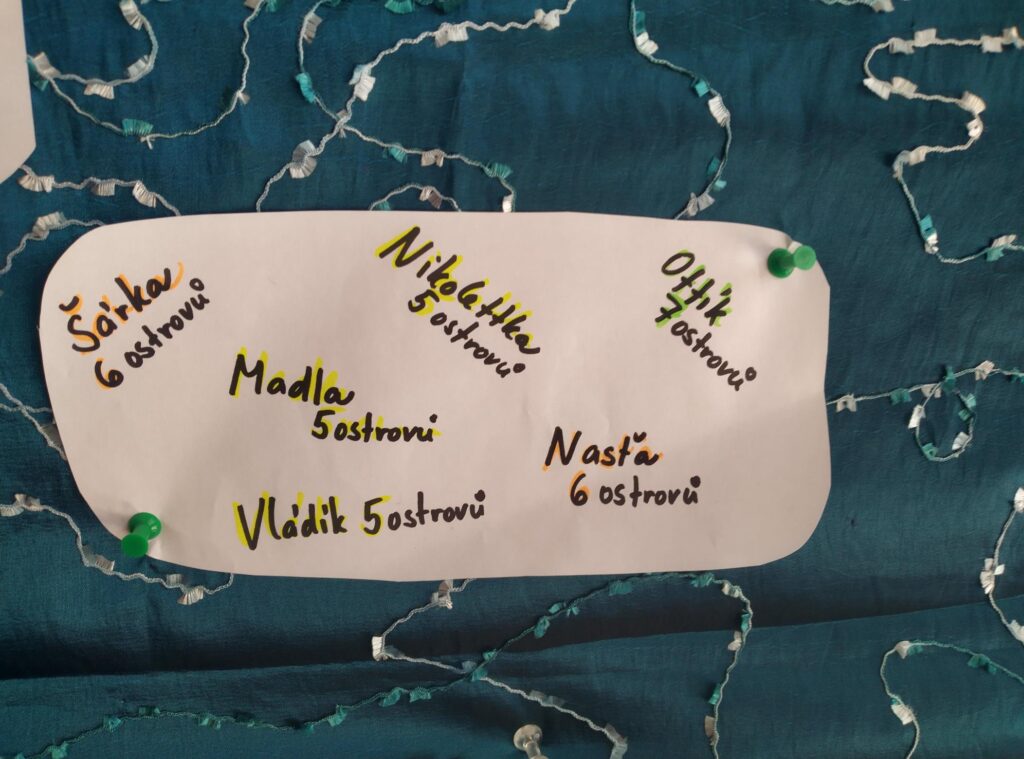 Šárka
6 ostrovů
Nikolettka
5 ostrovů
Offík
7 ostrovů
Madla
5 ostrovů
Nasťa
6 ostrovů
Vládík 5 ostrovů